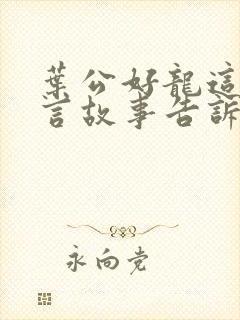 葉公好龍這
言故事告訴
永向党